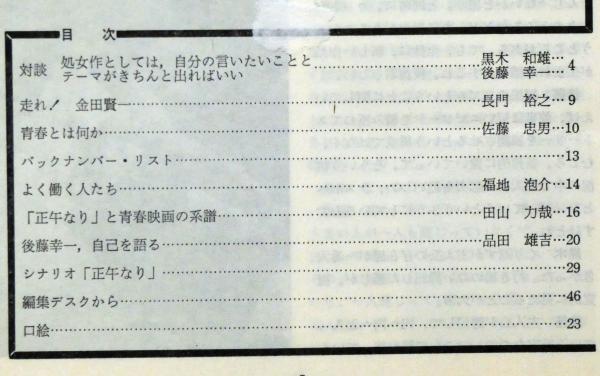 目 次
対談 処女作としては，自分の言いたいことと
テーマがきちんと出ればいい
黒木 和雄…
後藤 幸一… 4
走れ！ 金田賢一……長門 裕之…9
青春とは何か……佐藤 忠男…10
バックナンバー・リスト……13
よく働く人たち……福地 泡介…14
「正午なり」と青春映画の系譜……田山 力哉…16
後藤幸一，自己を語る……品田 雄吉…20
シナリオ「正午なり」……29
編集デスクから……46
口絵……23